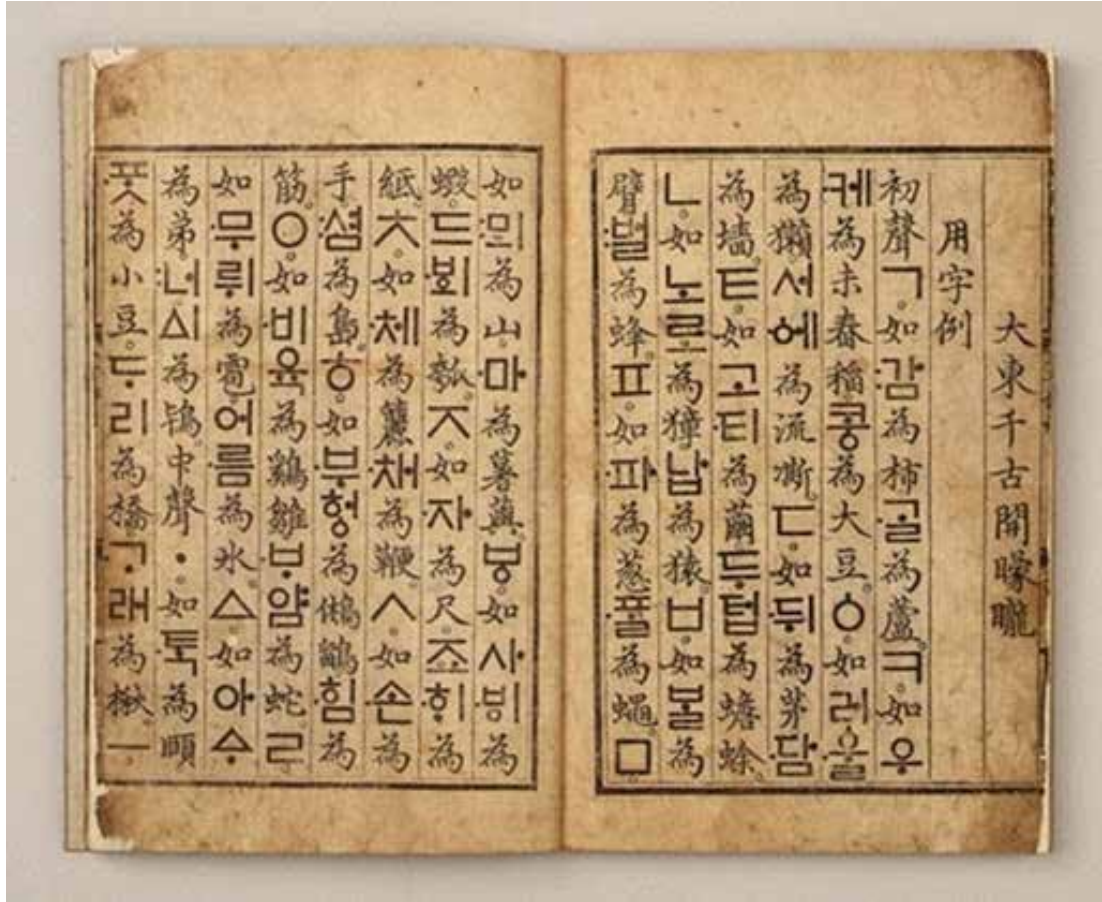 大東千古開矇矓
用字例
初聲ㄱ。如감為柿。ᄀᆞᆯ為蘆。ㅋ。如우
케為未舂稻。콩為大豆。ㆁ。如러ᅌᅮᆯ
為獺。서ᅌᅦ為流凘。ㄷ。如뒤為茅。담
為墻。ㅌ。如고티為繭。두텁為蟾蜍。
ㄴ。如노로為獐。납為猿。ㅂ。如ᄇᆞᆯ為
臂。벌為蜂。ㅍ。如파為葱。ᄑᆞᆯ為蠅。ㅁ。
如뫼為山。마為薯藇。ㅸ。如사ᄫᅵ為
蝦。드ᄫᅴ為瓠。ㅈ。如자為尺。죠ᄒᆡ為
紙。ㅊ。如체為籭。채為鞭。ㅅ。如손為
手。셤為島。ㅎ。如부헝為鵂鶹。힘為
筋。ㅇ。如비육為鷄雛。ᄇᆞ얌為蛇。ㄹ。
如무뤼為雹。어름為氷。ㅿ。如아ᅀᆞ
為弟。너ᅀᅵ為鴇。中聲ㆍ。如ᄐᆞᆨ為頤
ᄑᆞᆺ為小豆。ᄃᆞ리為橋。ᄀᆞ래為楸。ㅡ。